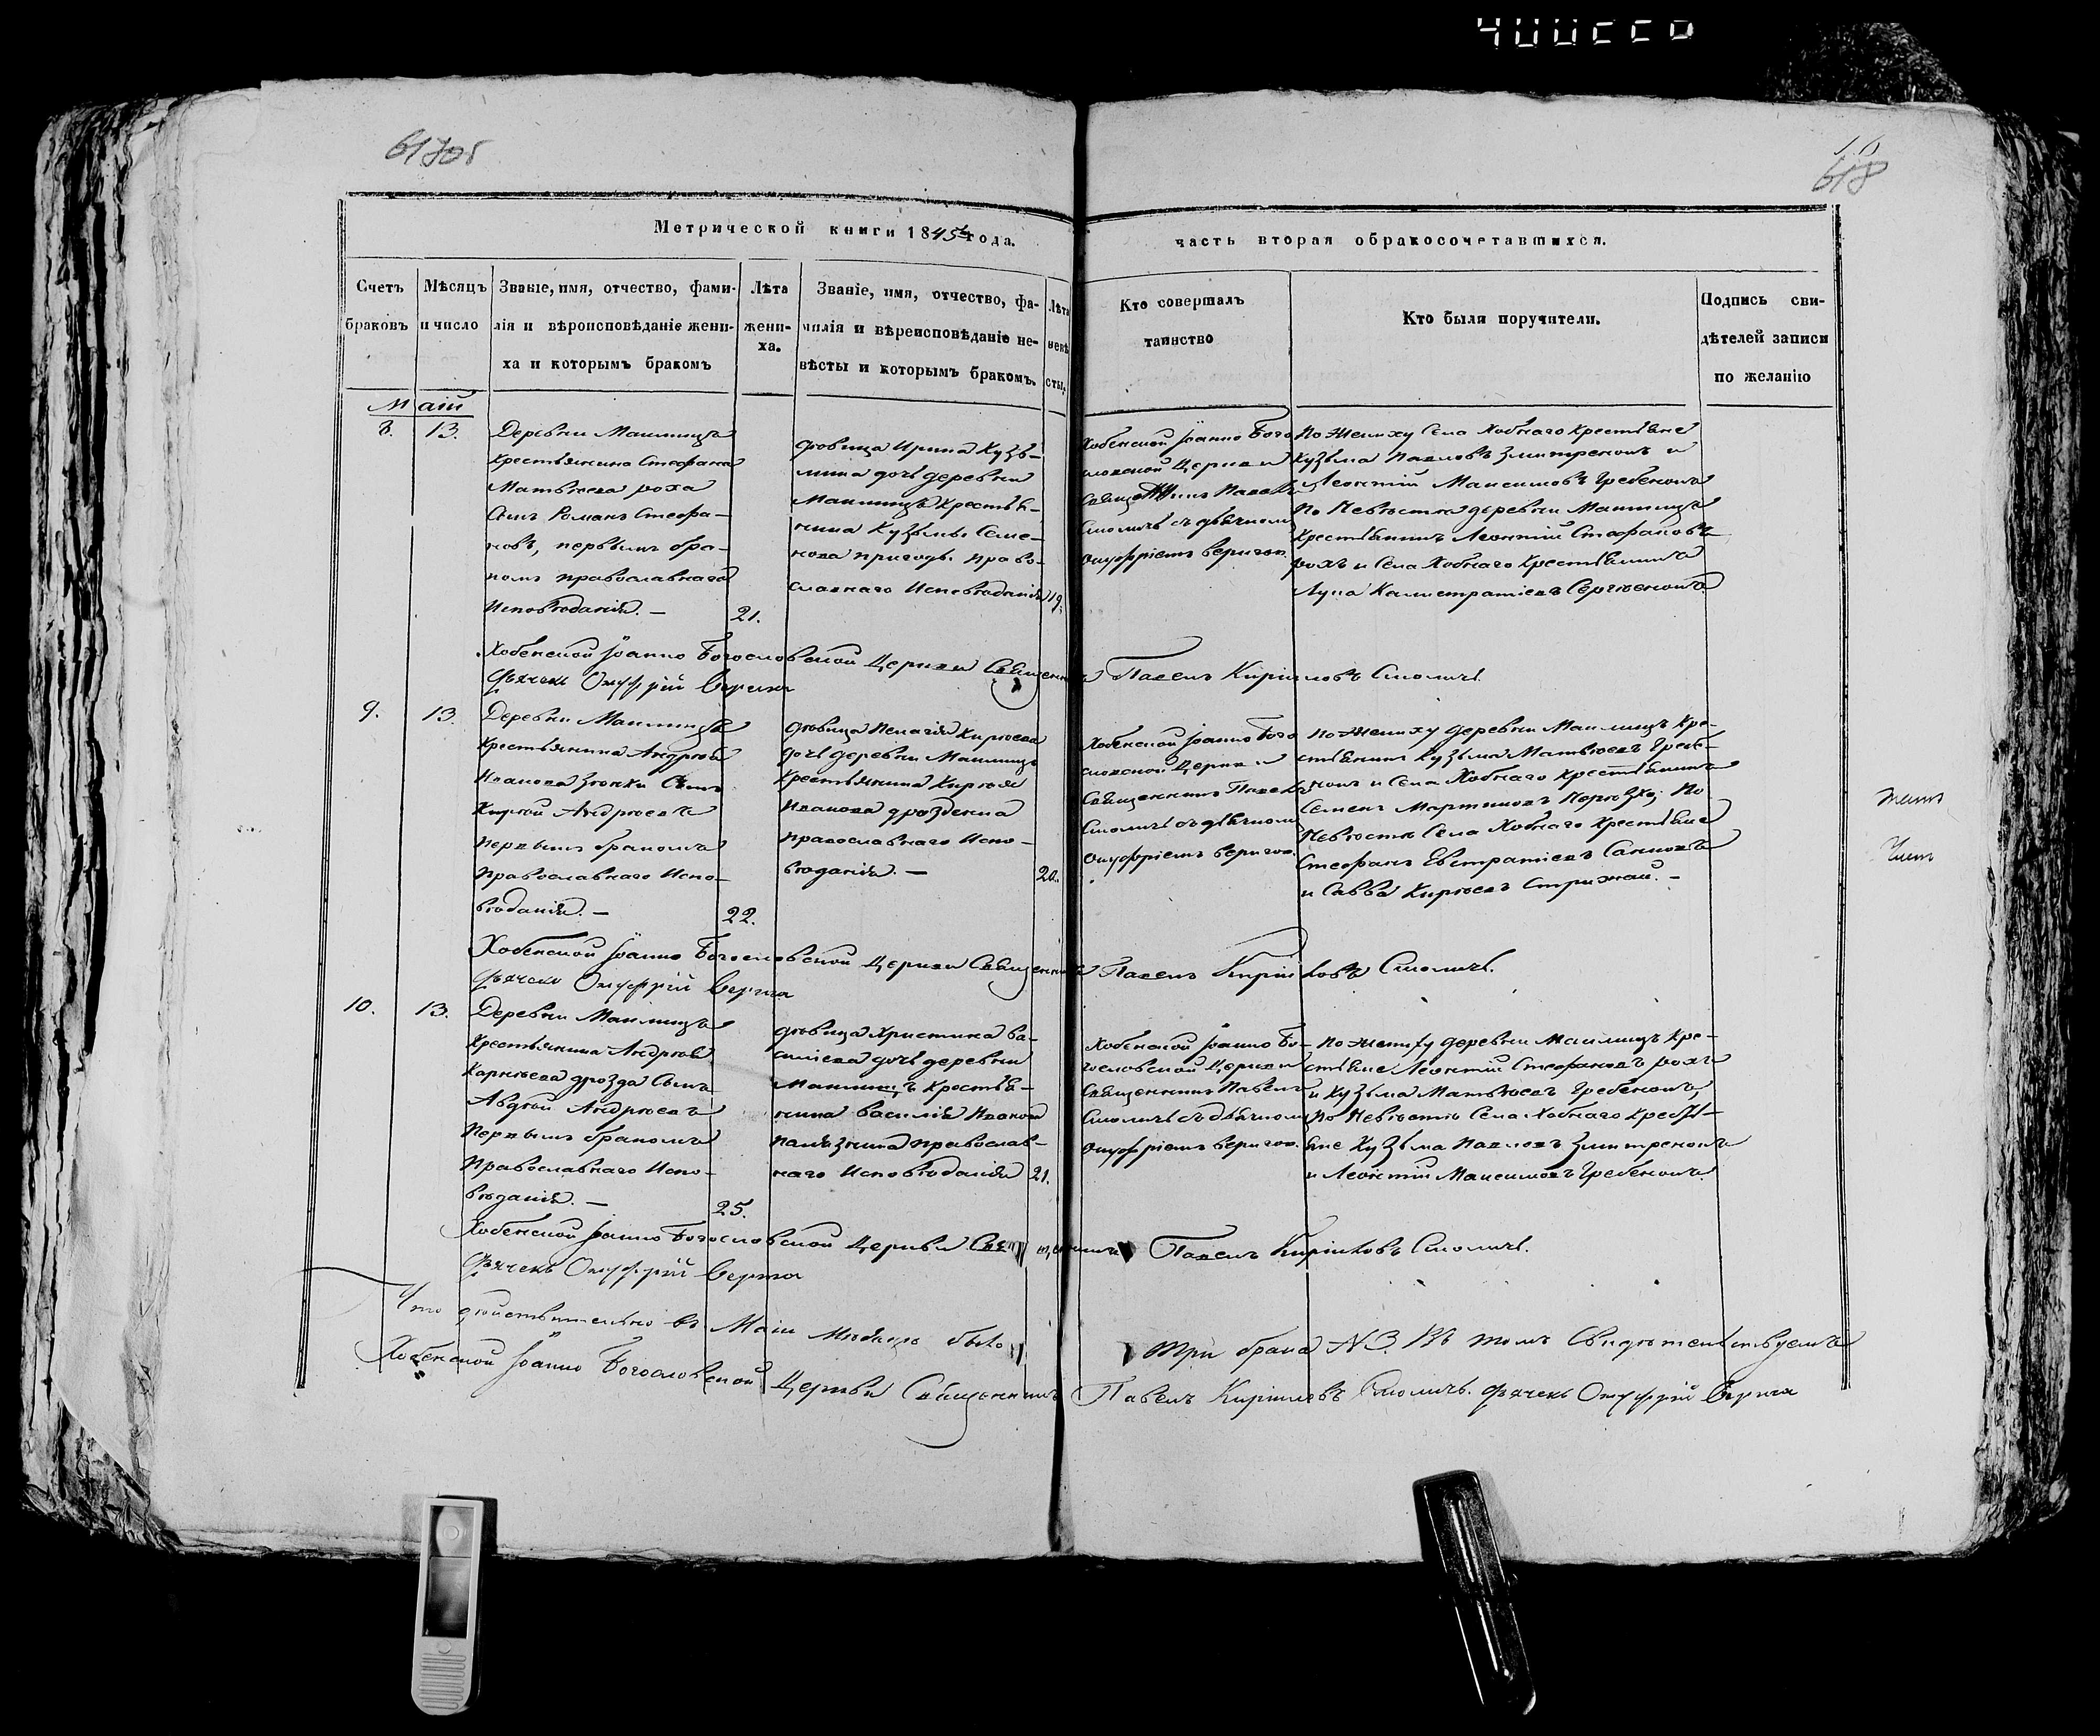 617 об
16
618
Метрической книги 1845го года.
часть вторая о бракосочетавшихся.
Счетъ браковъ
Мѣсяцъ и число
Званіе, имя, отчество, фами-
лія и вѣроисповѣданіе жени-
ха и которымъ бракомъ
Лѣта
жени-
ха.
Званіе, имя, отчество, фа-
милія и вѣроисповѣданіе не-
вѣсты и которымъ бракомъ.
Лѣта
невѣ
сты.
Кто совершалъ
таинство
Кто были поручители.
Подпись сви-
дѣтелей записи
по желанію
Маій
8. 13.
Деревни Маилищъ
крестьянина Стефана
Матвѣева роха
Сынъ Романъ Стефа-
новъ, первымъ бра-
комъ православнаго
Исповѣданія. —
21.
дѣвица Ирина Кузь-
мина дочь деревни
Маилищъ крестья-
нина Кузьмы Семе-
нова православнаго Исповѣданія
19.
Хобенской Іоанно Бого
словской Церкви
Священникъ Павелъ
Смоличъ съ дьячкомъ
Онуфріемъ Веригою.
По Жениху Села Хобнаго крестьяне
Кузьма Павловъ Змитренокъ и
Леонтій Максимовъ Гребенокъ
По Невѣсте деревни Маилищъ
крестьянинъ Леонтій Стефановъ
рохъ и Села Хобнаго крестьянинъ
Лука Калистратіевъ Сергѣенокъ
Хобенской Іоанно Богословской Церкви Священникъ Павелъ Кириловъ Смоличъ.
Дьячекъ Онуфрій Верига
9. 13.
Деревни Маилищъ
крестьянина Андрѣя
Иванова Сынъ
Андрѣевъ
первымъ бракомъ
православнаго Испо-
вѣданія. —
22.
дѣвица Пелагія Кирѣева
дочь деревни Маилищъ
крестьянина Кирѣя
Иванова дрозденка
православнаго Испо-
вѣданія. —
20.
Хобенской Іоанно Бого
словской Церкви
Священникъ Павелъ
Смоличъ съ дьячкомъ
Онуфріемъ Веригою.
По Жениху деревни Маилищъ кре-
стьянинъ Кузьма Матвѣевъ Гребе-
нокъ и Села Хобнаго крестьянинъ
Семенъ Мартиновъ По
Невѣсте Села Хобнаго крестьяне
Стефанъ Евстратіевъ
и Савва Кирѣевъ Стрижай. —
Хобенской Іоанно Богословской Церкви Священникъ Павелъ Кириловъ Смоличъ.
Дьячекъ Онуфрій Верига
10. 13.
Деревни Маилищъ
крестьянина Андрѣя
Карнѣева дрозда Сынъ
Авдѣй Андрѣевъ
первымъ бракомъ
православнаго Испо-
вѣданія. —
25.
дѣвица Христина Ва-
силіева дочь деревни
Маилищъ крестья-
нина Василія Иванова
православ-
наго Исповѣданія
21.
Хобенской Іоанно Бо-
гословской Церкви
Священникъ Павелъ
Смоличъ съ дьячкомъ
Онуфріемъ Веригою.
По Жениху деревни Маилищъ кре-
стьяне Леонтій Стефановъ рохъ
и Кузьма Матвѣевъ Гребенокъ,
По Невѣсте Села Хобнаго крест-
яне Кузьма Павловъ Змитренокъ
и Леонтій Максимовъ Гребенокъ.
Хобенской Іоанно Богословской Церкви Священникъ Павелъ Кириловъ Смоличъ.
Дьячекъ Онуфрій Верига
Что дѣйствительно въ Маіи Мѣсяцѣ было три брака №3. Въ томъ Свидѣтельствуемъ
Хобенской Іоанно Богословской Церкви Священникъ Павелъ Кириловъ Смоличъ. Дьячекъ Онуфрій Верига